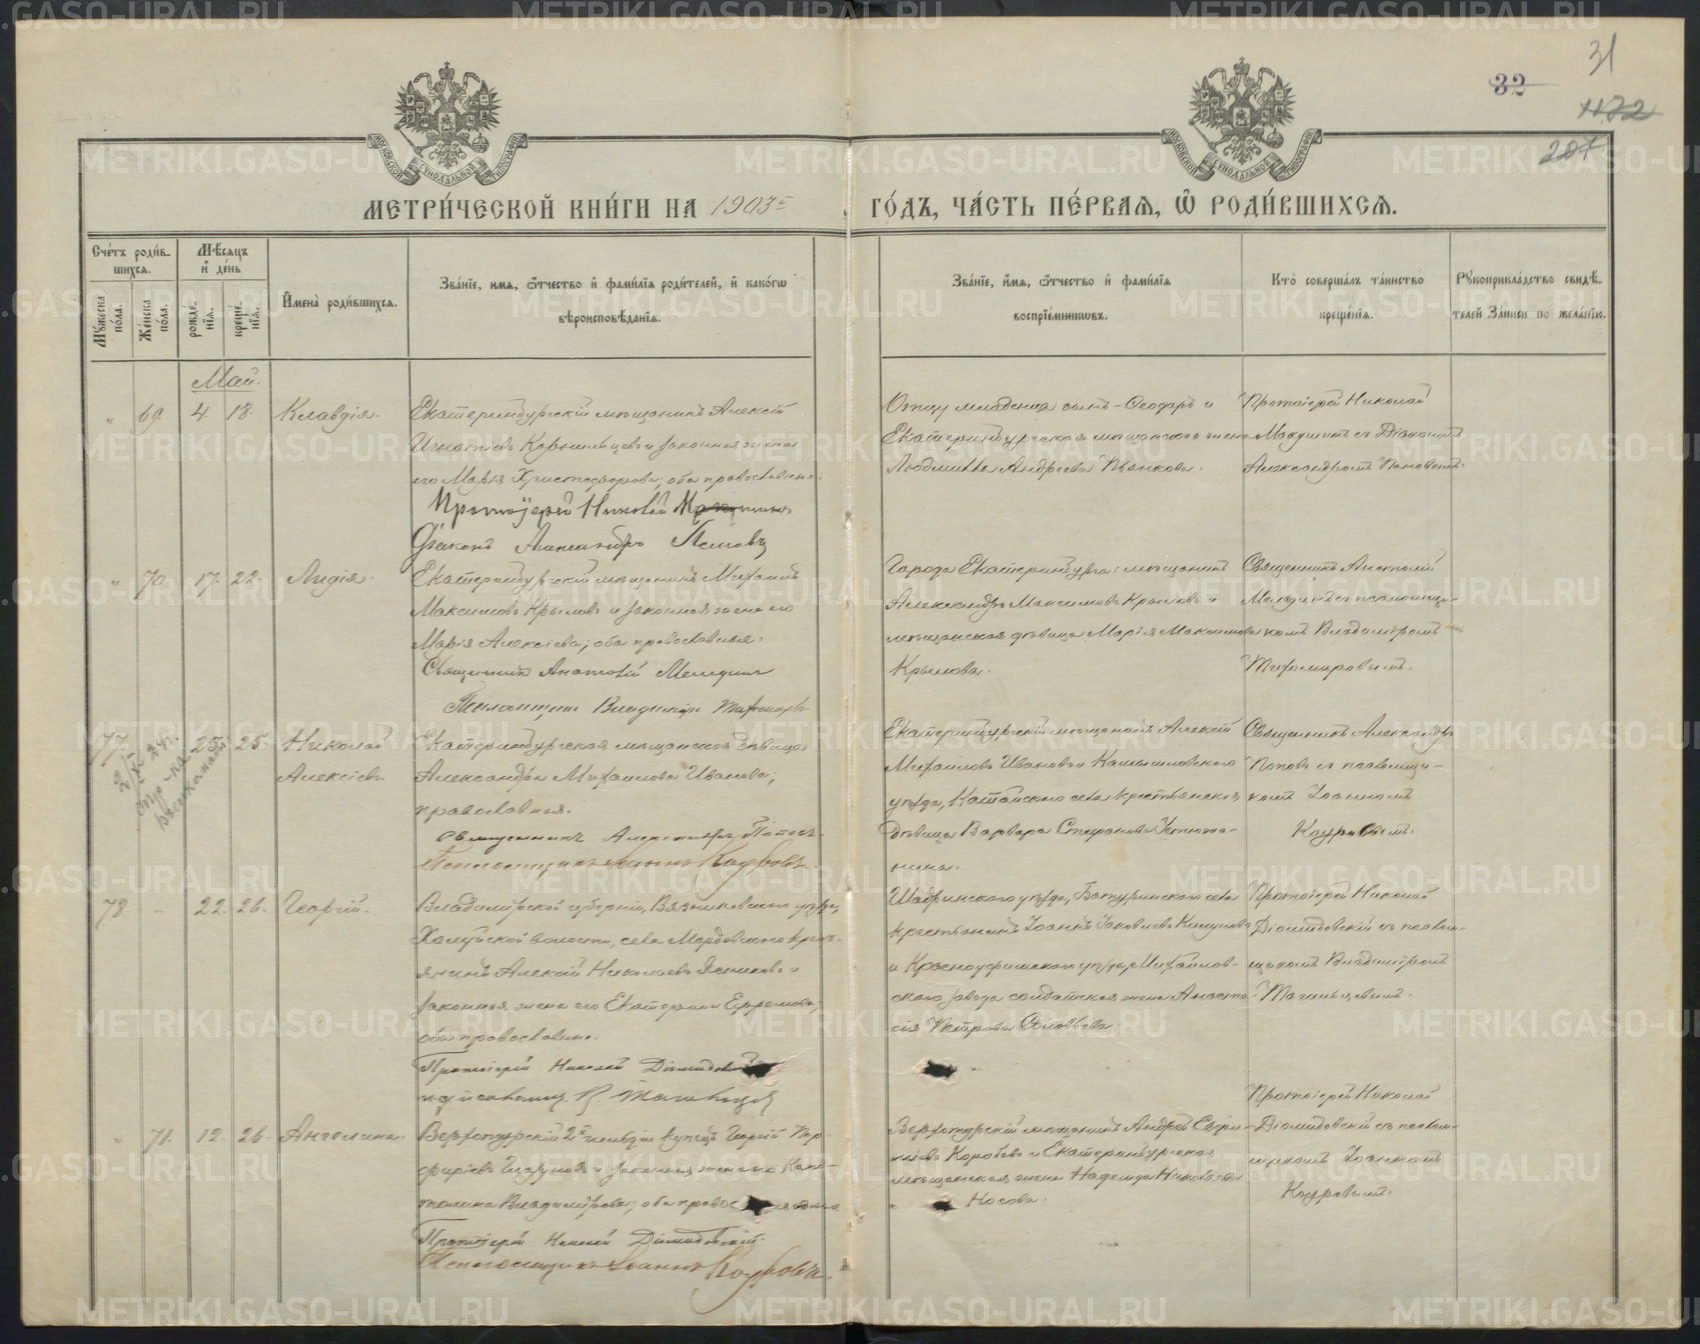 31
32
1172
207
МЕТРИ́ЧЕСКОЙ КНИ́ГИ НА 1903 ГО́ДЪ, ЧА́СТЬ ПЕ́РВАЯ, Ѽ РОДИ́ВШИХСЯ.
Сче́тъ роди́в-
шихся.
Мѣ́сяцъ
и҆ де́нь
Мꙋжеска по́ла.
Же́нска по́ла.
рожде́нїѧ.
креще́нїѧ.
И҆мена̀ роди́вшихся.
Зва́нїе, и҆мѧ, ѻ҆́тчество и҆ фами́лїѧ роди́телей, и҆ како́гѡ
вѣроисповѣ́данїѧ.
Зва́нїе, и҆́мѧ, ѻ҆́тчество и҆ фами́лїѧ
воспрїе́мникѡвъ.
Кто̀ соверша́лъ та́инство
креще́нїѧ.
Рꙋкоприкла́дство свидѣ́-
телей за́писи по жела́нїю.
Май.
" 69. 4. 18. Клавдія.
Екатеринбургскій мѣщанинъ Алексій
Игнатіевъ Корнильцевъ и законная жена
его Марія Христофорова; оба православные.
Протоіерей Николай
Діаконъ Александръ Пановъ
Отцу младенца сынъ - Ѳеодоръ и
Екатеринбургская мѣщанская жена
Людмилла Андреева Пьянкова.
Протоіерей Николай
съ Діакономъ
Александромъ Пановымъ.
" 70. 17. 22. Лидія.
Екатеринбургскій мѣщанинъ Михаилъ
Максимовъ Крыловъ и законная жена его
Марія Алексіева; оба православные.
Священникъ Анатолій Меледин
Псаломщикъ Владиміръ Тихомировъ
Города Екатеринбурга: мѣщанинъ
Александръ Максимовъ Крыловъ и
мѣщанская дѣвица Марія Максимова
Крылова.
Священникъ Анатолій
Мелединъ съ псаломщи-
комъ Владиміромъ
Тихомировымъ.
77. 23. 25. Николай
Алексіевъ
Екатеринбургская мѣщанская дѣвица
Александра Михаилова Иванова;
православная.
Священникъ Александръ Поповъ
Псаломщикъ Іоаннъ Кауровъ.
Екатеринбургскій мѣщанинъ Алексій
Михаиловъ Ивановъ и Камышловского
уѣзда, Катайского села крестьянская
дѣвица Варвара Стефанова Устюжа-
нина.
Священникъ Александръ
Поповъ съ псаломщи-
комъ Іоанномъ
Кауровымъ.
78. - 22. 26. Георгій.
Владимірской губерніи, Вязниковского уѣзда,
Холуйской волости, села Мордовского кресть-
янинъ Алексій Николаевъ и
законная жена его Екатерина Ефремова;
оба православные.
Протоіерей Николай Діомидовскій
Шадринского уѣзда, Батуринского села
крестьянинъ Іоаннъ Іаковлевъ
и Красноуфимского уѣзда, Михайлов-
ского завода солдатская жена Анаста-
сія Петрова Соловьева.
Протоіерей Николай
Діомидовскій съ псалом-
щикомъ Владиміромъ
" 71. 12. 26. Ангелина.
Верхотурскій 2й гильдіи купецъ Георгій Пор-
фиріевъ и законная жена его Капи-
толина Владимірова; оба православные
Протоіерей Николай Діомидовскій
Псаломщикъ Іоаннъ Кауровъ.
Верхотурскій мѣщанинъ Андрей
Коробовъ и Екатеринбургская
мѣщанская жена Надежда Николаева
Носова.
Протоіерей Николай
Діомидовскій съ псалом-
щикомъ Іоанномъ
Кауровымъ.
METRIKI.GASO-URAL.RU